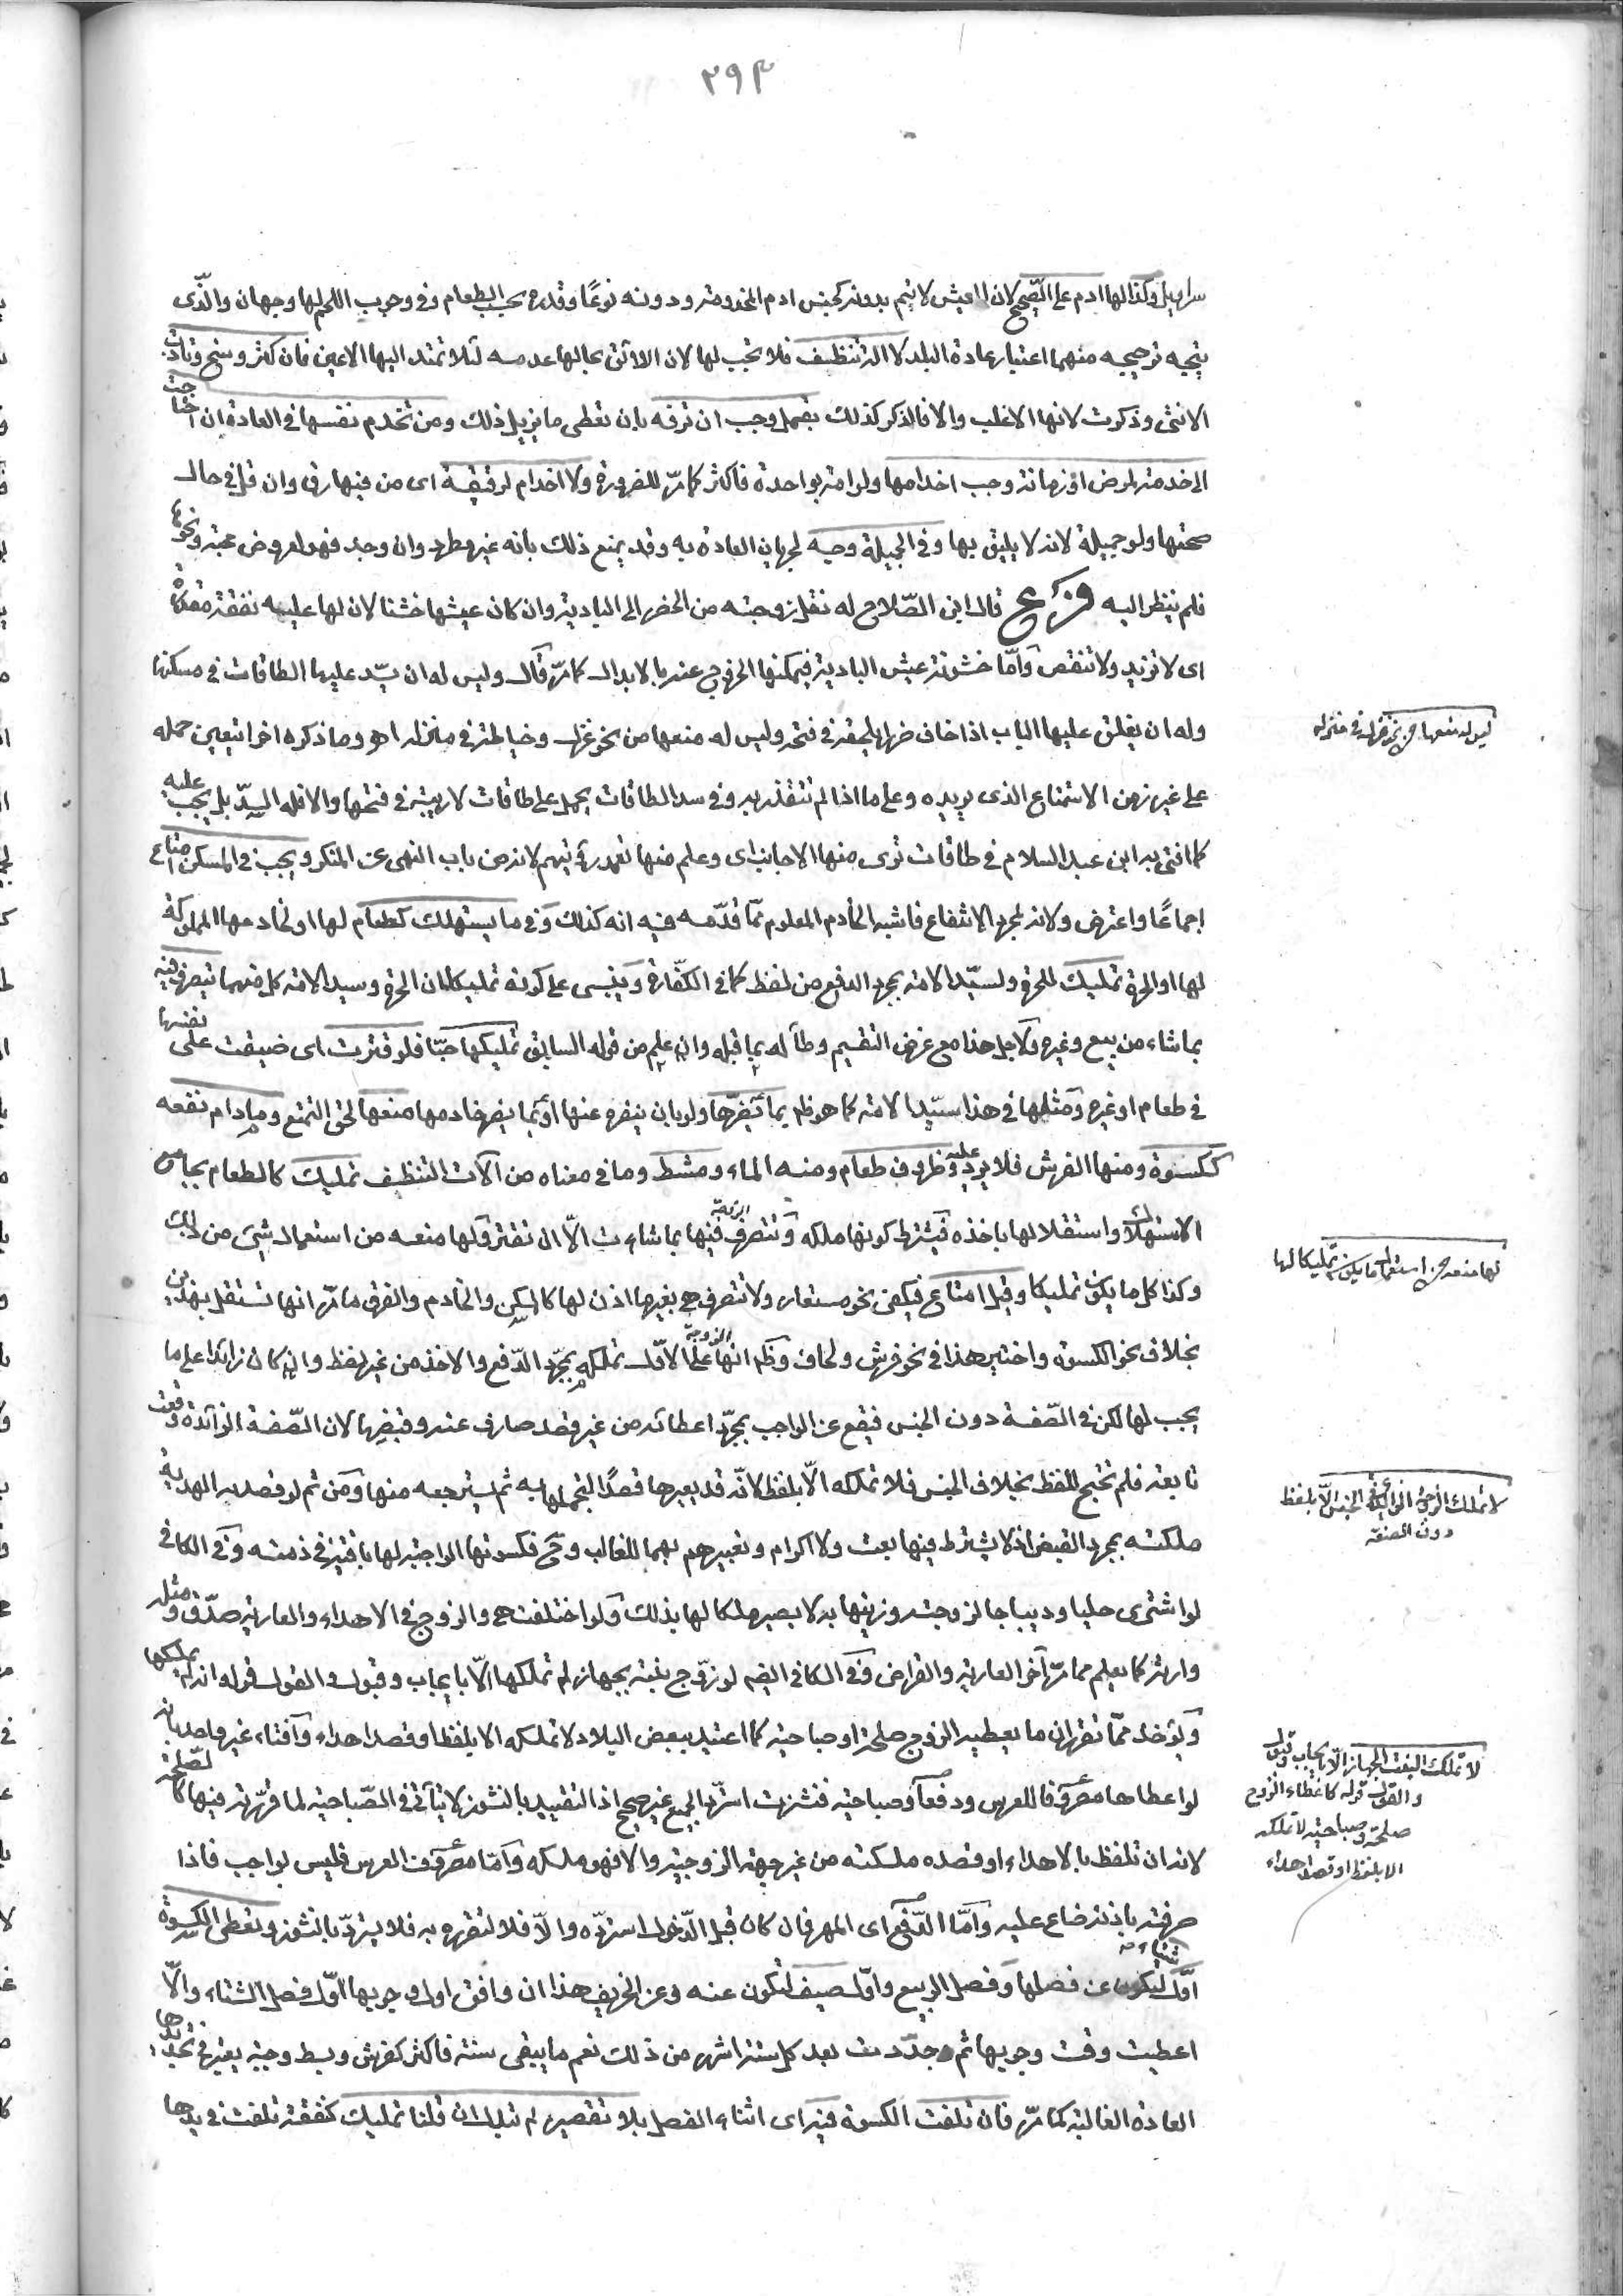 ٢٩٣
سراويل وكذا لها ادم على الصحيح لان العيش لا يتم بدونه كجنس ادم المخدومة ودونه نوعًا وقدره بحسب الطعام وفي وجوب اللحم لها وجهان والذى
يتجه ترجيحه منهما اعتبار عادة البلد لا الة تنظف فلا تجب لها لان اللائق بحالها عدمه لئلا تمتد اليها الاعين فان كثر وسخ وتاذت
الانثى وذكرت لانها الاغلب والا فالذكر كذلك بقمل وجب ان ترفه بان تعطى ما يزيل ذلك ومن تخدم نفسها في العادة ان احتاجت
الى خدمة لمرض او زمانة وجب اخدامها ولو امة بواحدة فاكثر كما مرّ للضرورة ولا اخدام لرقيقة اى من فيها رق وان قل في حال
صحتها ولو جميلة لانه لا يليق بها وفي الجميلة وجه لجريان العادة به وقد يمنع ذلك بانه غير مطرد وان وجد فهو لعروض محبة ونحوها
فلم ينظر اليه فرع قال ابن الصّلاح له نقل زوجته من الحضر الى البادية وان كان عيشها خشنا لان لها عليه نفقة مقدرة
اى لا تزيد ولا تنقص وامّا خشونة عيش البادية فيمكنها الخروج عنه بالابدال كما مرّ قال وليس له ان يسّد عليها الطاقات في مسكنها
وله ان يغلق عليها الباب اذا خاف ضررا يلحقه في فتحه وليس له منعها من نحو غزل وخياطة في منزله اهـ وما ذكره اخرا يتعين حمله
على غير زمن الاستمتاع الذى يريده وعلى ما اذا لم تتقذر به وفي سد الطاقات يحمل على طاقات لا ريبة في فتحها والا فله السدّ بل يجب عليه
كما افتى به ابن عبد السلام في طاقات ترى منها الاجانب اى وعلم منها تعمد رؤيتهم لانه من باب النهى عن المنكر ويجب في المسكن امتاع
اجماعًا واعترض ولانه لمجرد الانتفاع فاشبه الخادم المعلوم ممّا قدّمه فيه انه كذلك وفي ما يستهلك كطعام لها او لخادمها المملوكة
لها او الحرة تمليك للحرة ولسيّد الامة بمجرد الدفع من لفظ كما في الكفّارة وينبنى على كونه تمليكا ان الحرة وسيد الامة كل منهما يتصرف فيه
بما شاء من بيع وغيره ولاجل هذا مع غرض التقسيم وطأ له بما قبله وان علم من قوله السابق تمليكها حبّا فلو قترت اى ضيقت على نفسها
في طعام او غيره ومثلها في هذا سيّد الامة كما هو ظم بما يضرّها ولو بان ينفره عنها او بما يضر خادمها منعها لحق التمتع وما دام نفعه
ككسوة ومنها الفرش فلا يرد عليه وظروف طعام ومنه الماء ومشط وما في معناه من آلات التنظيف تمليك كالطعام بجامع
الاستهلاك واستقلالها باخذه فيشترط كونها ملكه وتتصرف فيها بما شاءت الّا ان تقتر ولها منعه من استعمال شئ من ذلك
وكذا كل ما يكن تمليكا وقيل امتاع فيكفى نحو مستعار ولا تتصرف هى بغيرها اذن لها كالمسكن والخادم والفرق ما مرّ انها تستقل بهذين
بخلاف نحو الكسوة واختير هذا في نحو فرش ولحاف وظم انها على الاوّل تملكه بمجرّد الدّفع والاخذ من غير لفظ وان كان زائدا على ما
يجب لها لكن في الصّفة دون الجنس فيقع عن الواجب بمجرّد اعطائه من غير قصد صارف عنه وقبضها لان الصّفة الزائدة وقعت
تابعة فلم تحتج للفظ بخلاف الجنس فلا تملكه الّا بلفظ لانّه قد يعيرها قصدًا لتجملها به ثم يسترجعه منها ومن ثم لو قصد به الهدية
ملكته بمجرد القبض اذ لا يشترط فيها بعث ولا اكرام وتعبيرهم بهما للغالب وح فكسوتها الواجبة لها باقية في ذمته وفي الكافى
لو اشترى حليا وديباجا لزوجته وزينها به لا يصير ملكا لها بذلك ولو اختلفت هى والزوج في الاهداء والعارية صدّق ومثله
وارثه كما يعلم مما مرّ آخر العارية والقراض وفي الكافى ايضم لو زوّج بنته بجهاز لم تملكها الّا بايجاب وقبول والقول قوله انه لم يملكها
ويؤخذ ممّا تقرر ان ما يعطيه الزوج صلحة او صباحية كما اعتيد ببعض البلاد لا تملكه الا بلفظ او قصد اهداء وافتاء غير واحد بانه
لو اعطاها مصروفا للعرس ودفعا وصباحية فنشزت استردّ الجميع غير صحيح اذ التقييد بالنشوز لا يتأتى في الصّباحية لما قررته فيها كالصلحة
لانه ان تلفظ بالاهداء او قصده ملكته من غير جهة الزوجية والا فهو ملكه وامّا مصروف العرس فليس بواجب فاذا
صرفته باذنه ضاع عليه وامّا الدّفع اى المهر فان كان قبل الدّخول استردّه والّا فلا لتقرره به فلا يستردّ بالنشوز وتعطى الكسوة
اوّل شتاء لتكون عن فصلها وفصل الربيع واوّل صيف لتكون عنه وعن الخريف هذا ان وافق اول وجوبها اوّل فصل الشتاء والّا
اعطيت وقت وجوبها ثم جدّدت بعد كل ستة اشهر من ذلك نعم ما يبقى سنة فاكثر كفرش وبسط وجبة يعتبر في تجديدها
العادة الغالبة كما مرّ فان تلفت الكسوة فيه اى اثناء الفصل بلا تقصير لم تبدل ان قلنا تمليك كنفقة تلفت في يدها
ليس له منعها من نحو غزل في منزله
لها منعه من استعمال ما يكن تمليكا لها
لا تملك الزوجة الزائد في الجنس الّا بلفظ
دون الصفة
لا تملك البنت الجهاز الّا بايجاب وقبول
والقول قوله كاعطاء الزوج
صلحة وصباحية لا تملكه
الا بلفظ او قصد اهداء